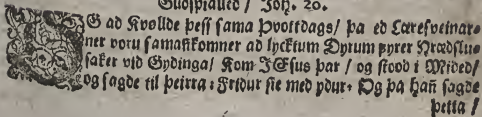 Gudspialled / Joh. 20.
EG ad Kvollde þess sama Þvottdags / þa ed Læresveinar-
ner voru samañkomner ad lycktum Dyrum fyrer Hrædslu-
saker vid Gydinga / Kom JEsus þar / og stood i Mided /
og sagde til þeirra: Fridur sie med ydur. Og þa hañ sagde
þetta /